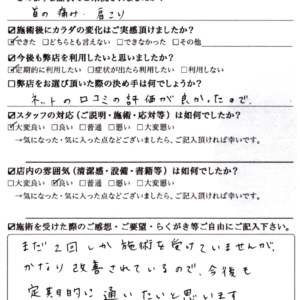 首の痛み 肩こり
☑施術後にカラダの変化はご実感頂けましたか?
☑できた □どちらとも言えない □できなかった □その他
☑今後も弊店を利用したいと思いましたか?
☑定期的に利用したい □症状が出たら利用したい □利用しない
□弊店をお選び頂いた際の決め手は何でしょうか?
ネットの口コミの評価が良かったので、
☑スタッフの対応(ご説明・施術・応対等)は如何でしたか?
☑大変良い □良い □普通 □悪い □大変悪い
→気になった・気に入った点などございましたら、ご記入頂ければ幸いです。
☑店内の雰囲気(清潔感・設備・書籍等)は如何でしたか?
□大変良い ☑良い □普通 □悪い □大変悪い
→気になった・気に入った点などございましたら、ご記入頂ければ幸いです。
☑施術を受けた際のご感想・ご要望・らくがき等ご自由にご記入下さい。
まだ2回しか施術を受けていませんが、
かなり改善されているので、今後も
定期的に通いたいと思います